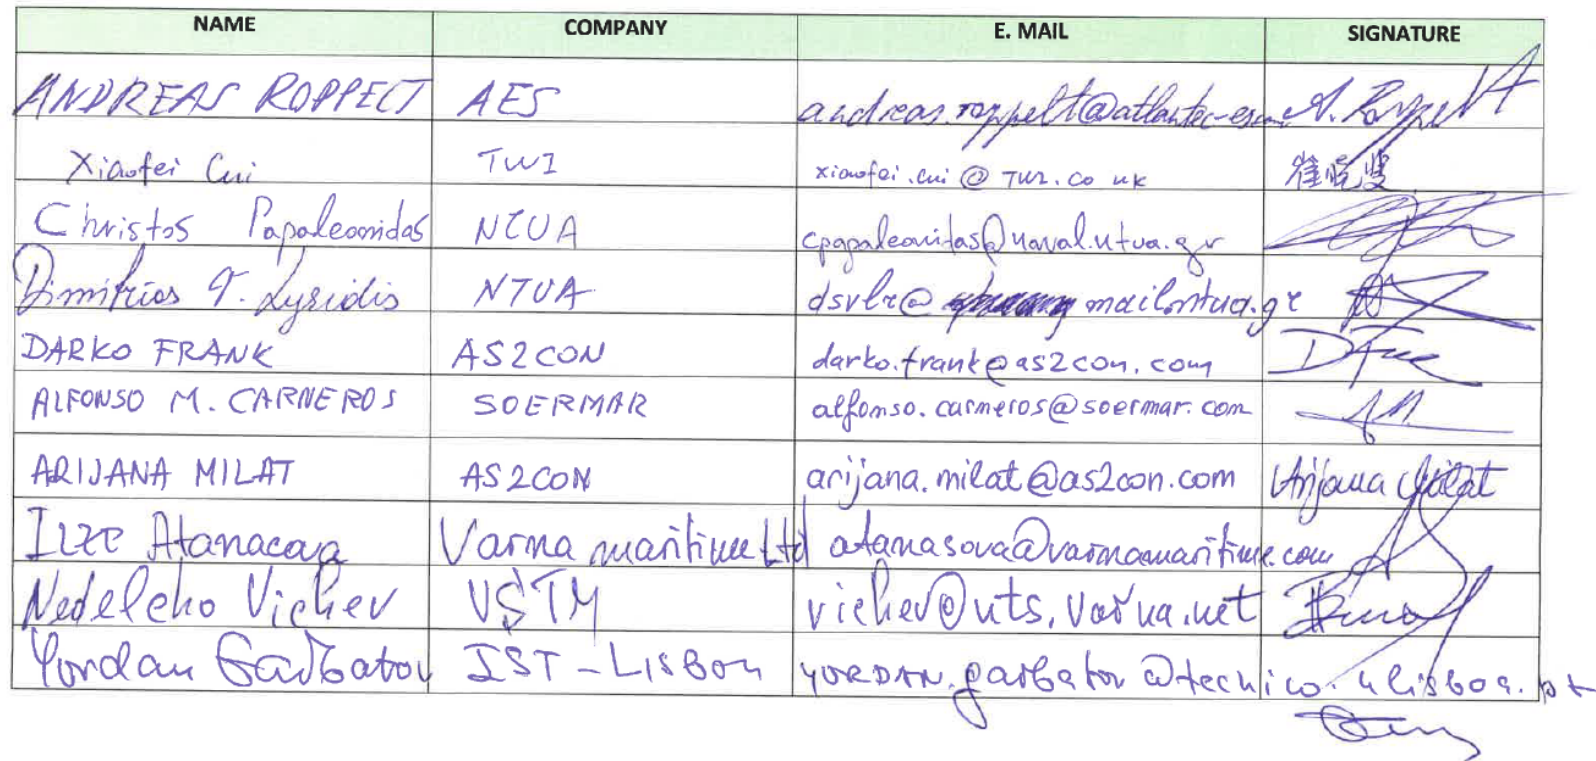 NAME COMPANY E. MAIL SIGNATURE
ANDREAS ROPPELT AES andreas.roppelt@atlantec-es A. Roppelt
Xiaofei Cui TWI xiaofei.cui @ TWI. co uk 崔晓斐
Christos Papaleonidas NTUA cpapaleonidas@naval.ntua.gr
Dimitrios V. Lyridis NTUA dsvlr@ mail.ntua.gr
DARKO FRANK AS2CON darko.frank@as2con.com
ALFONSO M. CARNEROS SOERMAR alfonso.carneros@soermar.com
ARIJANA MILAT AS2CON arijana.milat@as2con.com Arijana Milat
Atanacova Varna maritime Ltd atanasova@varnamaritime.com
Nedelcho Vichev VSTM vichev@nts.varna.net
Yordan Garbatov IST - LISBON YORDAN.garbatov@tecnico.ulisboa.pt